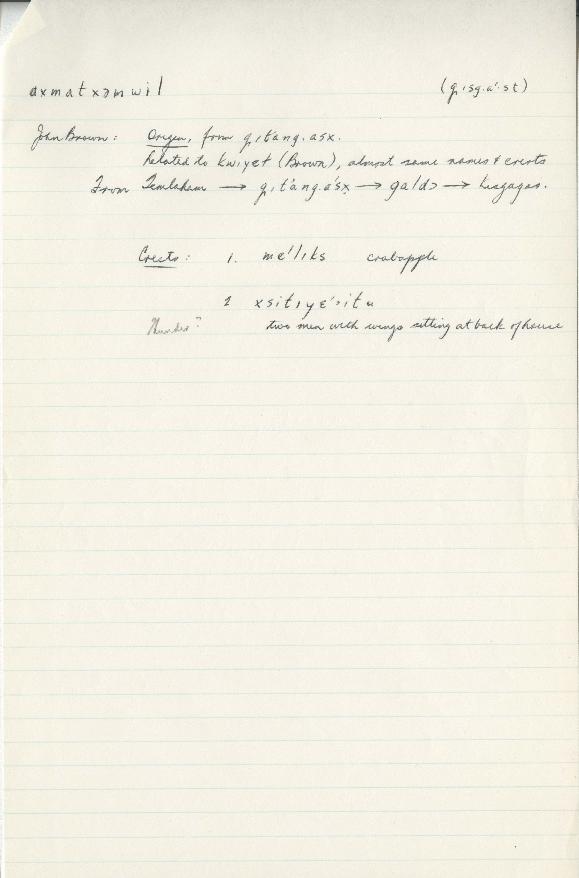 axmatxəmwil (g,ısg.a'·st)
John Brown: Origin, from g,ıtang.asx.
Related to kwiyɛt (Brown), almost same names & crests
From Temlaham → g,ıt'ang.a'sx → galdɔ → kisgagas.
Crests: 1. me'lıks crabapple
2 xsitıyɛ'ɔitu
Thunder? two men with wings sitting at back of house